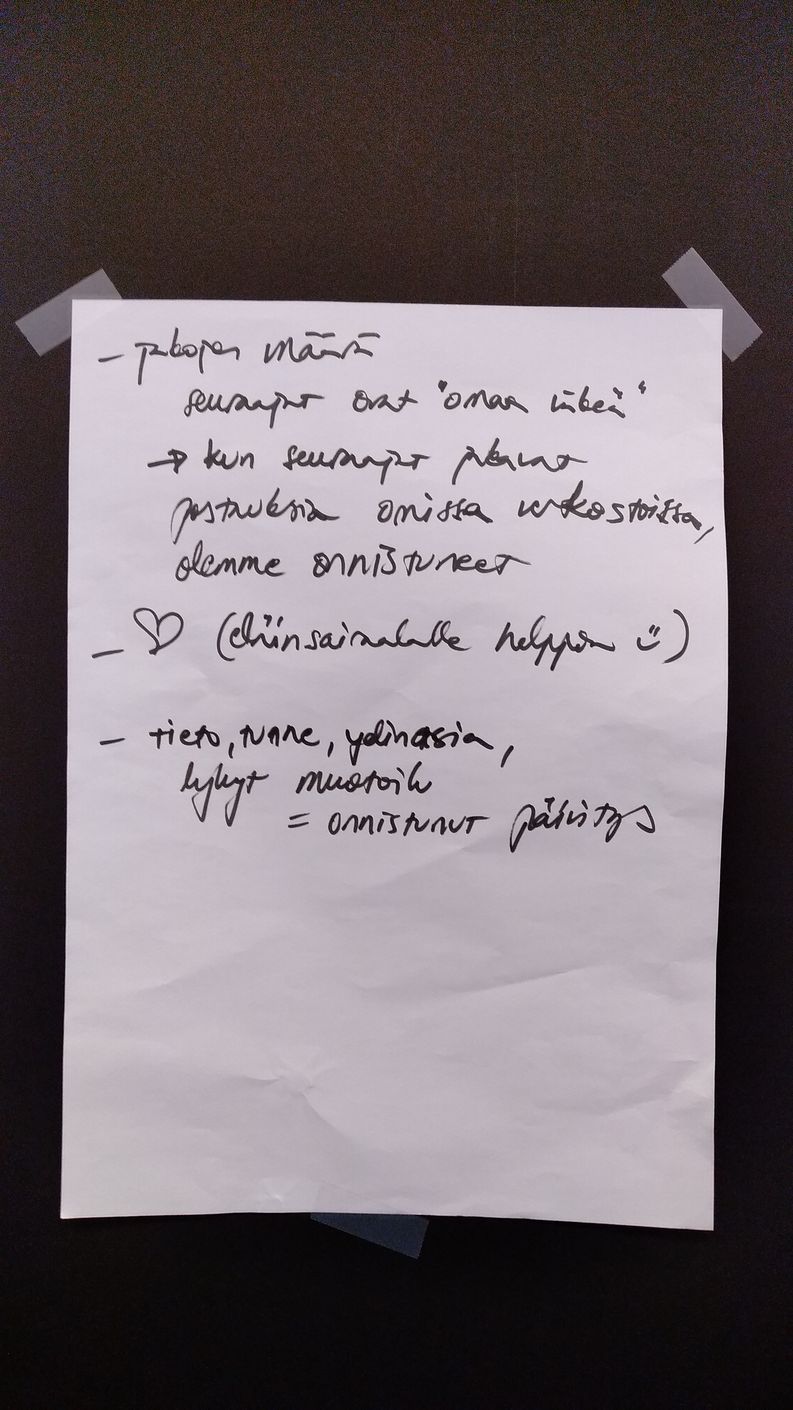 – jakojen määrä
seuraajat ovat "omaa väkeä"
→ kun seuraajat jakavat
postauksia omissa verkostoissa,
olemme onnistuneet
– ♡ (eläinsairaalalle helppoa ü)
– tieto, tunne, ydinasia,
lyhyt muotoilu
= onnistunut päivitys